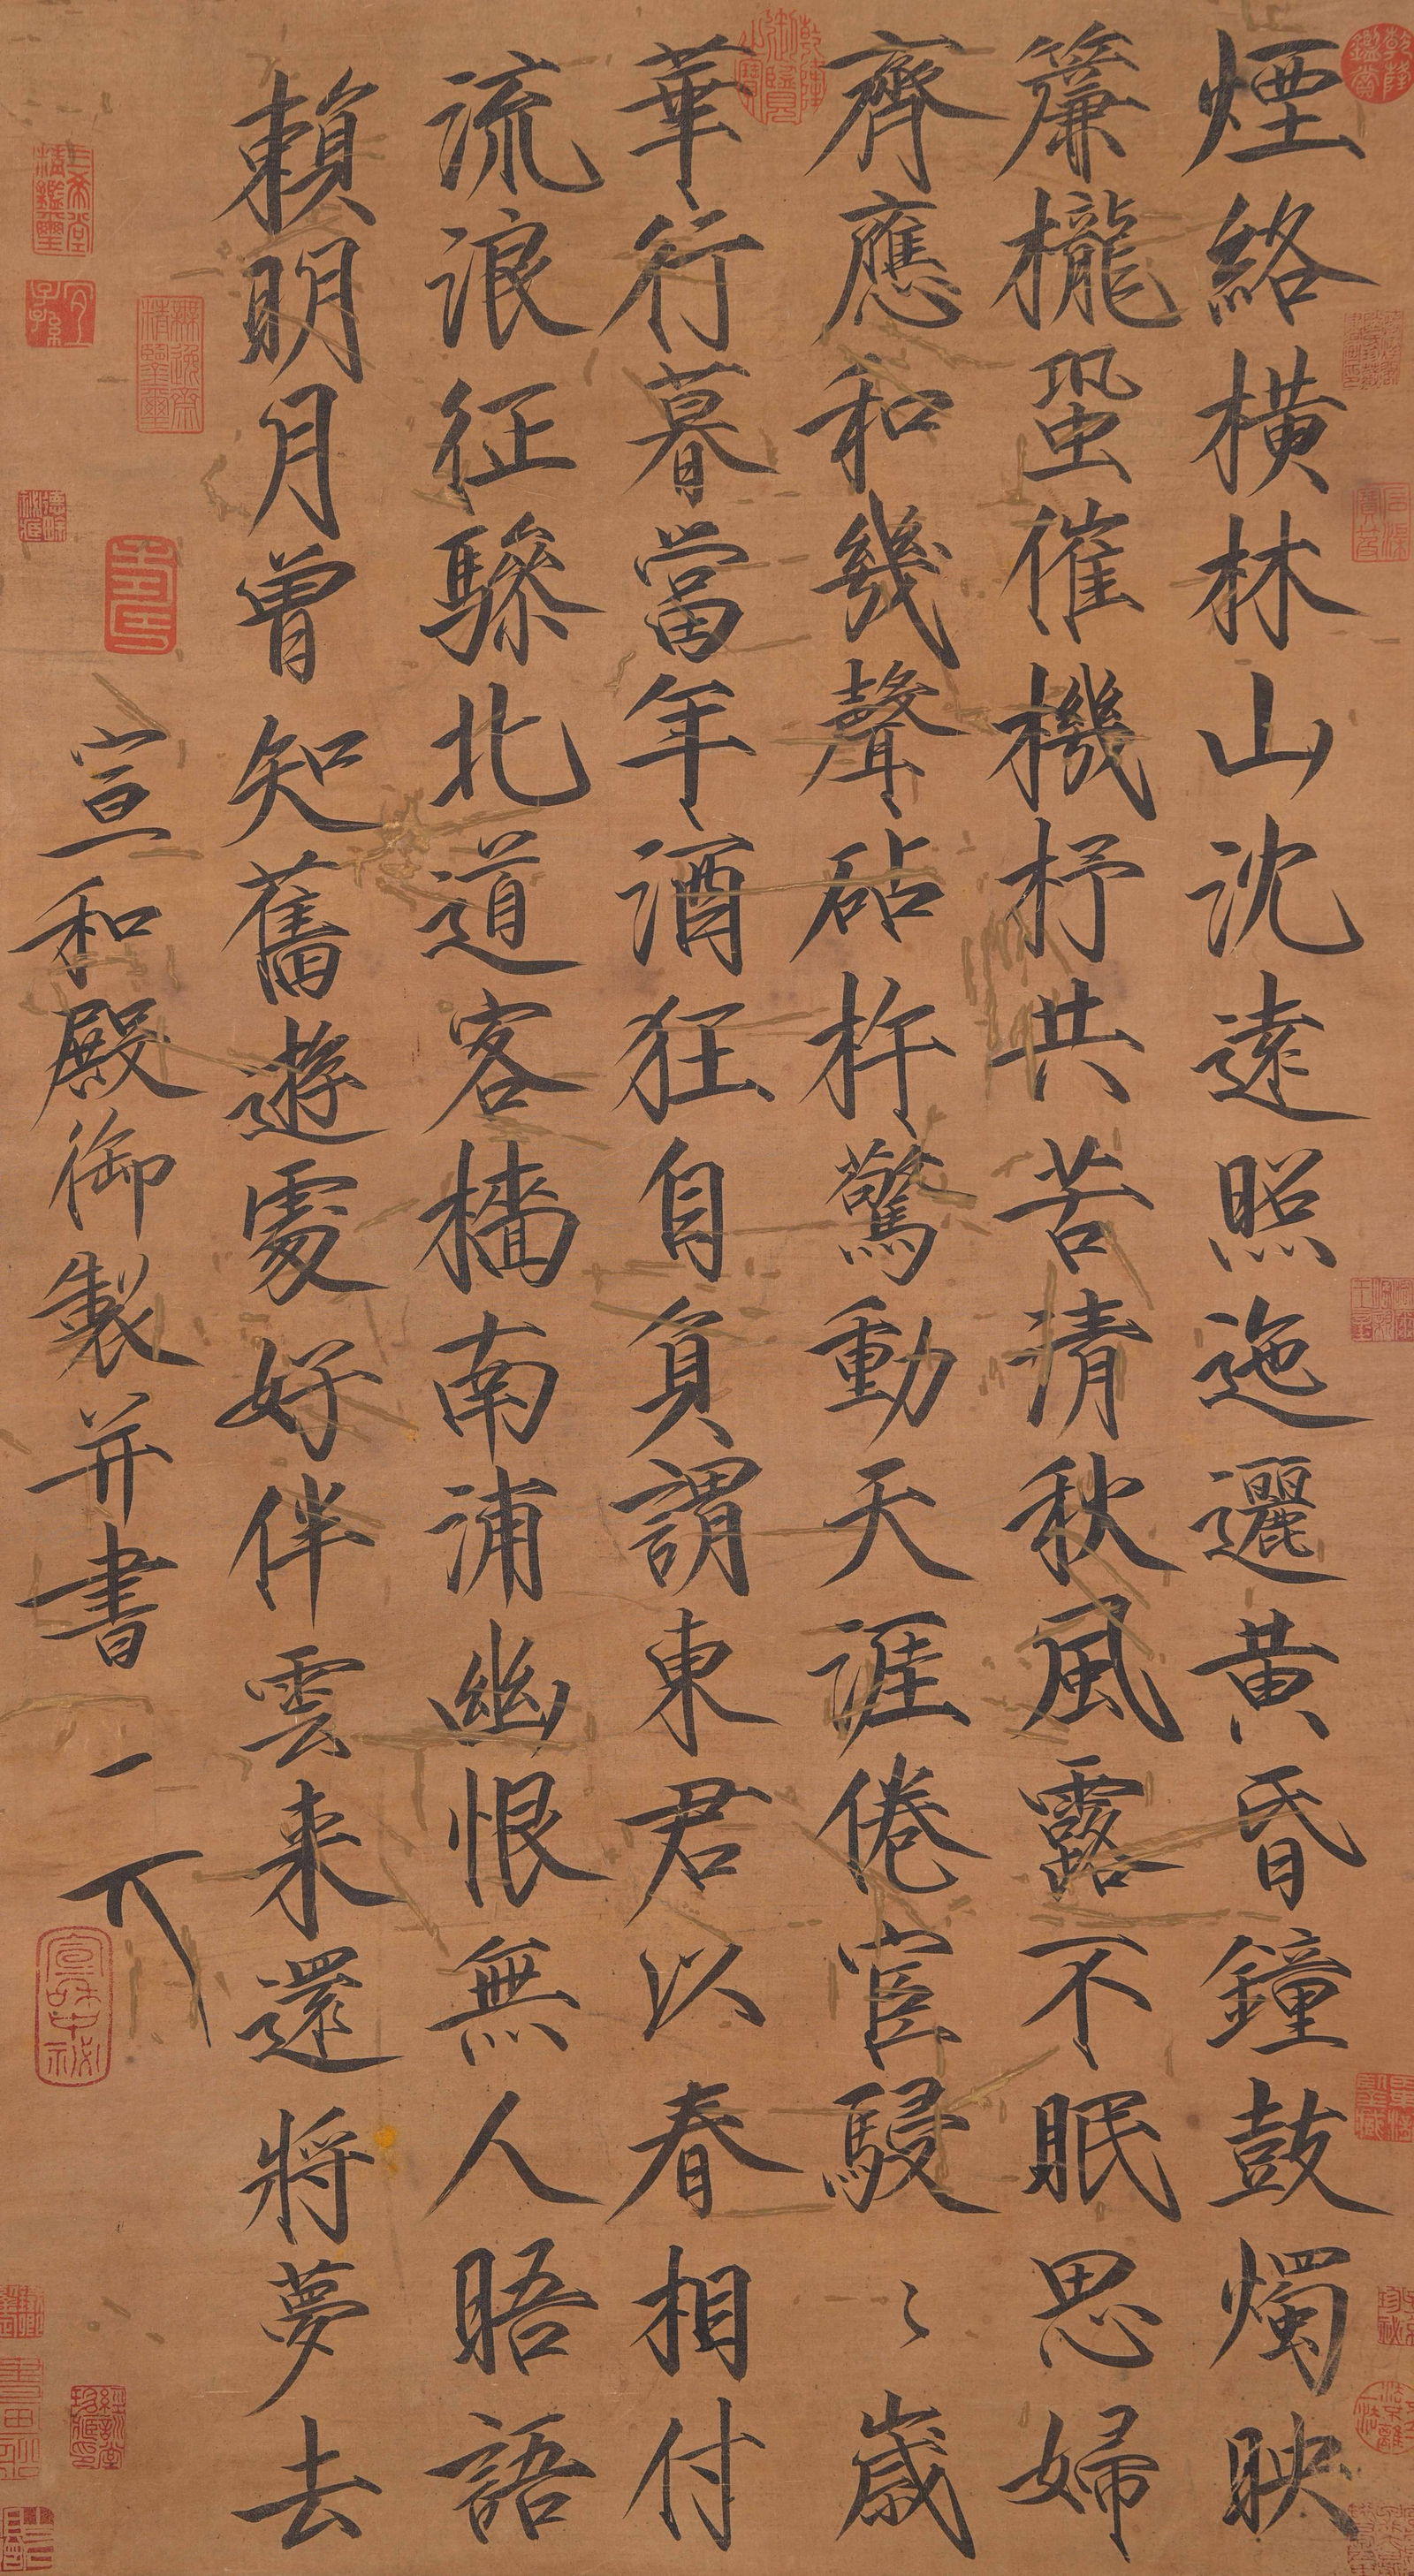 煙絡橫林山沈遠照迤邐黃昏鐘鼓燭映
簾櫳蛩催機杼共苦清秋風露不眠思婦
齊應和幾聲砧杵驚動天涯倦宦駸〻歲
華行暮當年酒狂自負謂東君以春相付
流浪征驂北道客檣南浦幽恨無人晤語
賴明月曾知舊遊處好伴雲来還將夢去
宣和殿御製并書